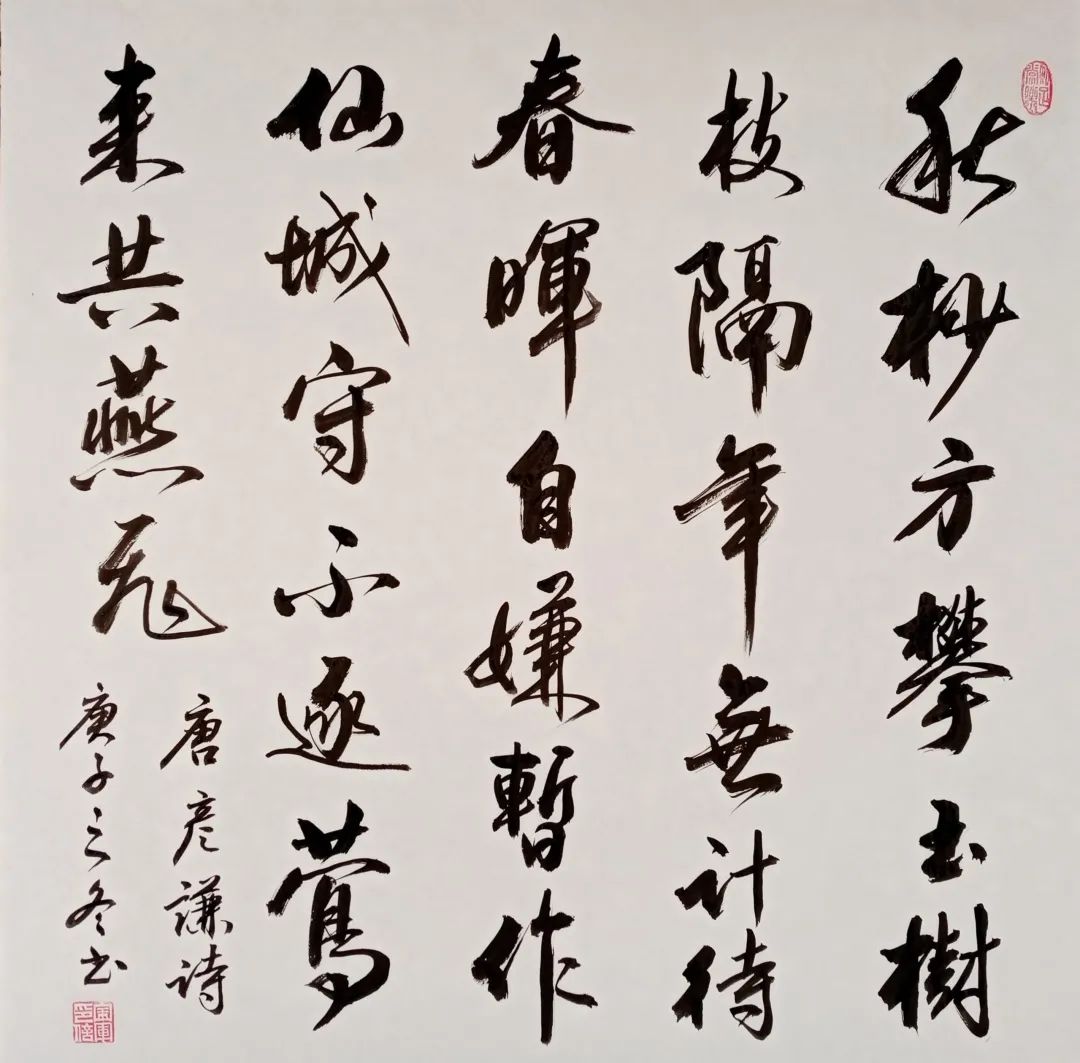 秋杪方攀玉樹
枝隔年無計待
春暉自嫌暫作
仙城守不逐鶯
来共燕飛
唐彦謙詩
庚子之冬书